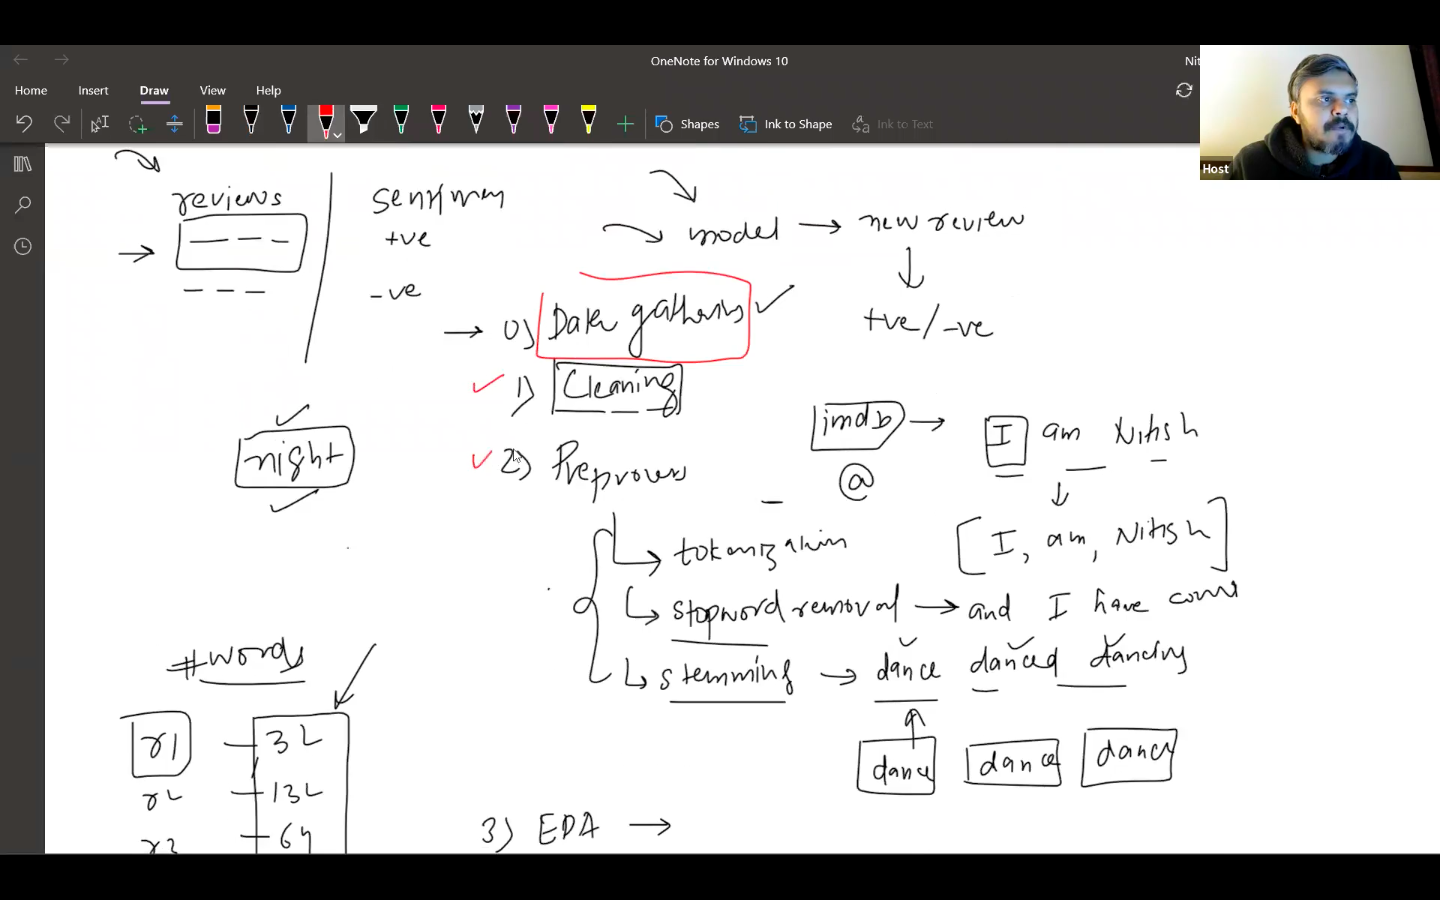 OneNote for Windows 10
Nit
Home Insert Draw View Help
Shapes Ink to Shape Ink to Text
Host
reviews
+ve
-ve
model → new review
+ve/-ve
0) Data gathering
1) Cleaning
2) Preprocess
night
imdb → I am Nitish
@
[I, am, Nitish]
tokenization
stopword removal → and I have
stemming → dance danced dancing
dance dance dance
#words
r1
r2
r3
3) EDA →